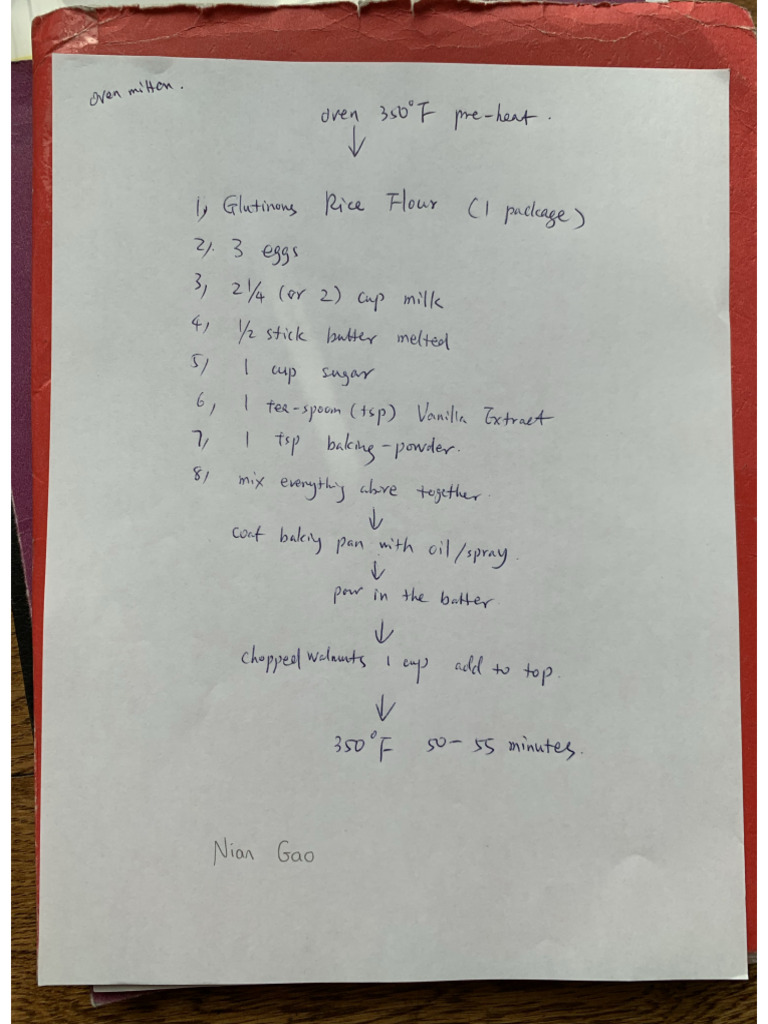 oven mitten.
oven 350°F pre-heat.
↓
1, Glutinous Rice Flour (1 package)
2, 3 eggs
3, 2 1/4 (or 2) cup milk
4, 1/2 stick butter melted
5, 1 cup sugar
6, 1 tea-spoom (tsp) Vanilla Extract
7, 1 tsp baking-powder.
8, mix everything above together.
↓
coat baking pan with oil/spray.
↓
pour in the batter
↓
chopped walnuts 1 cup add to top.
↓
350°F 50-55 minutes.
Nian Gao